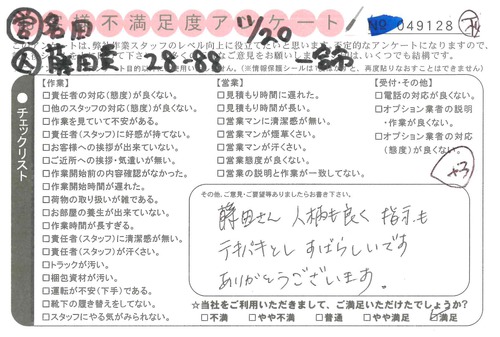 お客様不満足度アンケート
11/20
No 049128
28-88
【作業】
□責任者の対応(態度)が良くない。
□他のスタッフの対応(態度)が良くない。
□作業を見ていて不安がある。
□責任者(スタッフ)に好感が持てない。
□お客様への挨拶が出来ていない。
□ご近所への挨拶・気遣いが無い。
□作業開始前の内容確認がなかった。
□作業開始時間が遅れた。
□荷物の取り扱いが雑である。
□お部屋の養生が出来ていない。
□作業時間が長すぎる。
□責任者(スタッフ)に清潔感が無い。
□責任者(スタッフ)が汗くさい。
□トラックが汚い。
□梱包資材が汚い。
□運転が不安(下手)である。
□靴下の履き替えをしてない。
□スタッフにやる気がみられない。
【営業】
□見積もり時間に遅れた。
□見積もり時間が長い。
□営業マンに清潔感が無い。
□営業マンが煙草くさい。
□営業マンが汗くさい。
□営業態度が良くない。
□営業の説明と作業が一致してない。
【受付・その他】
□電話の対応が良くない。
□オプション業者の説明・作業が良くない。
□オプション業者の対応(態度)が良くない。
チェックリスト
その他、ご意見・ご要望等ありましたらお書き下さい。
蒔田さん 人柄も良く 指示も
テキパキとし すばらしいです
ありがとうございます。
☆当社をご利用いただきまして、ご満足いただけたでしょうか?
□不満 □やや不満 □普通 □やや満足 □満足